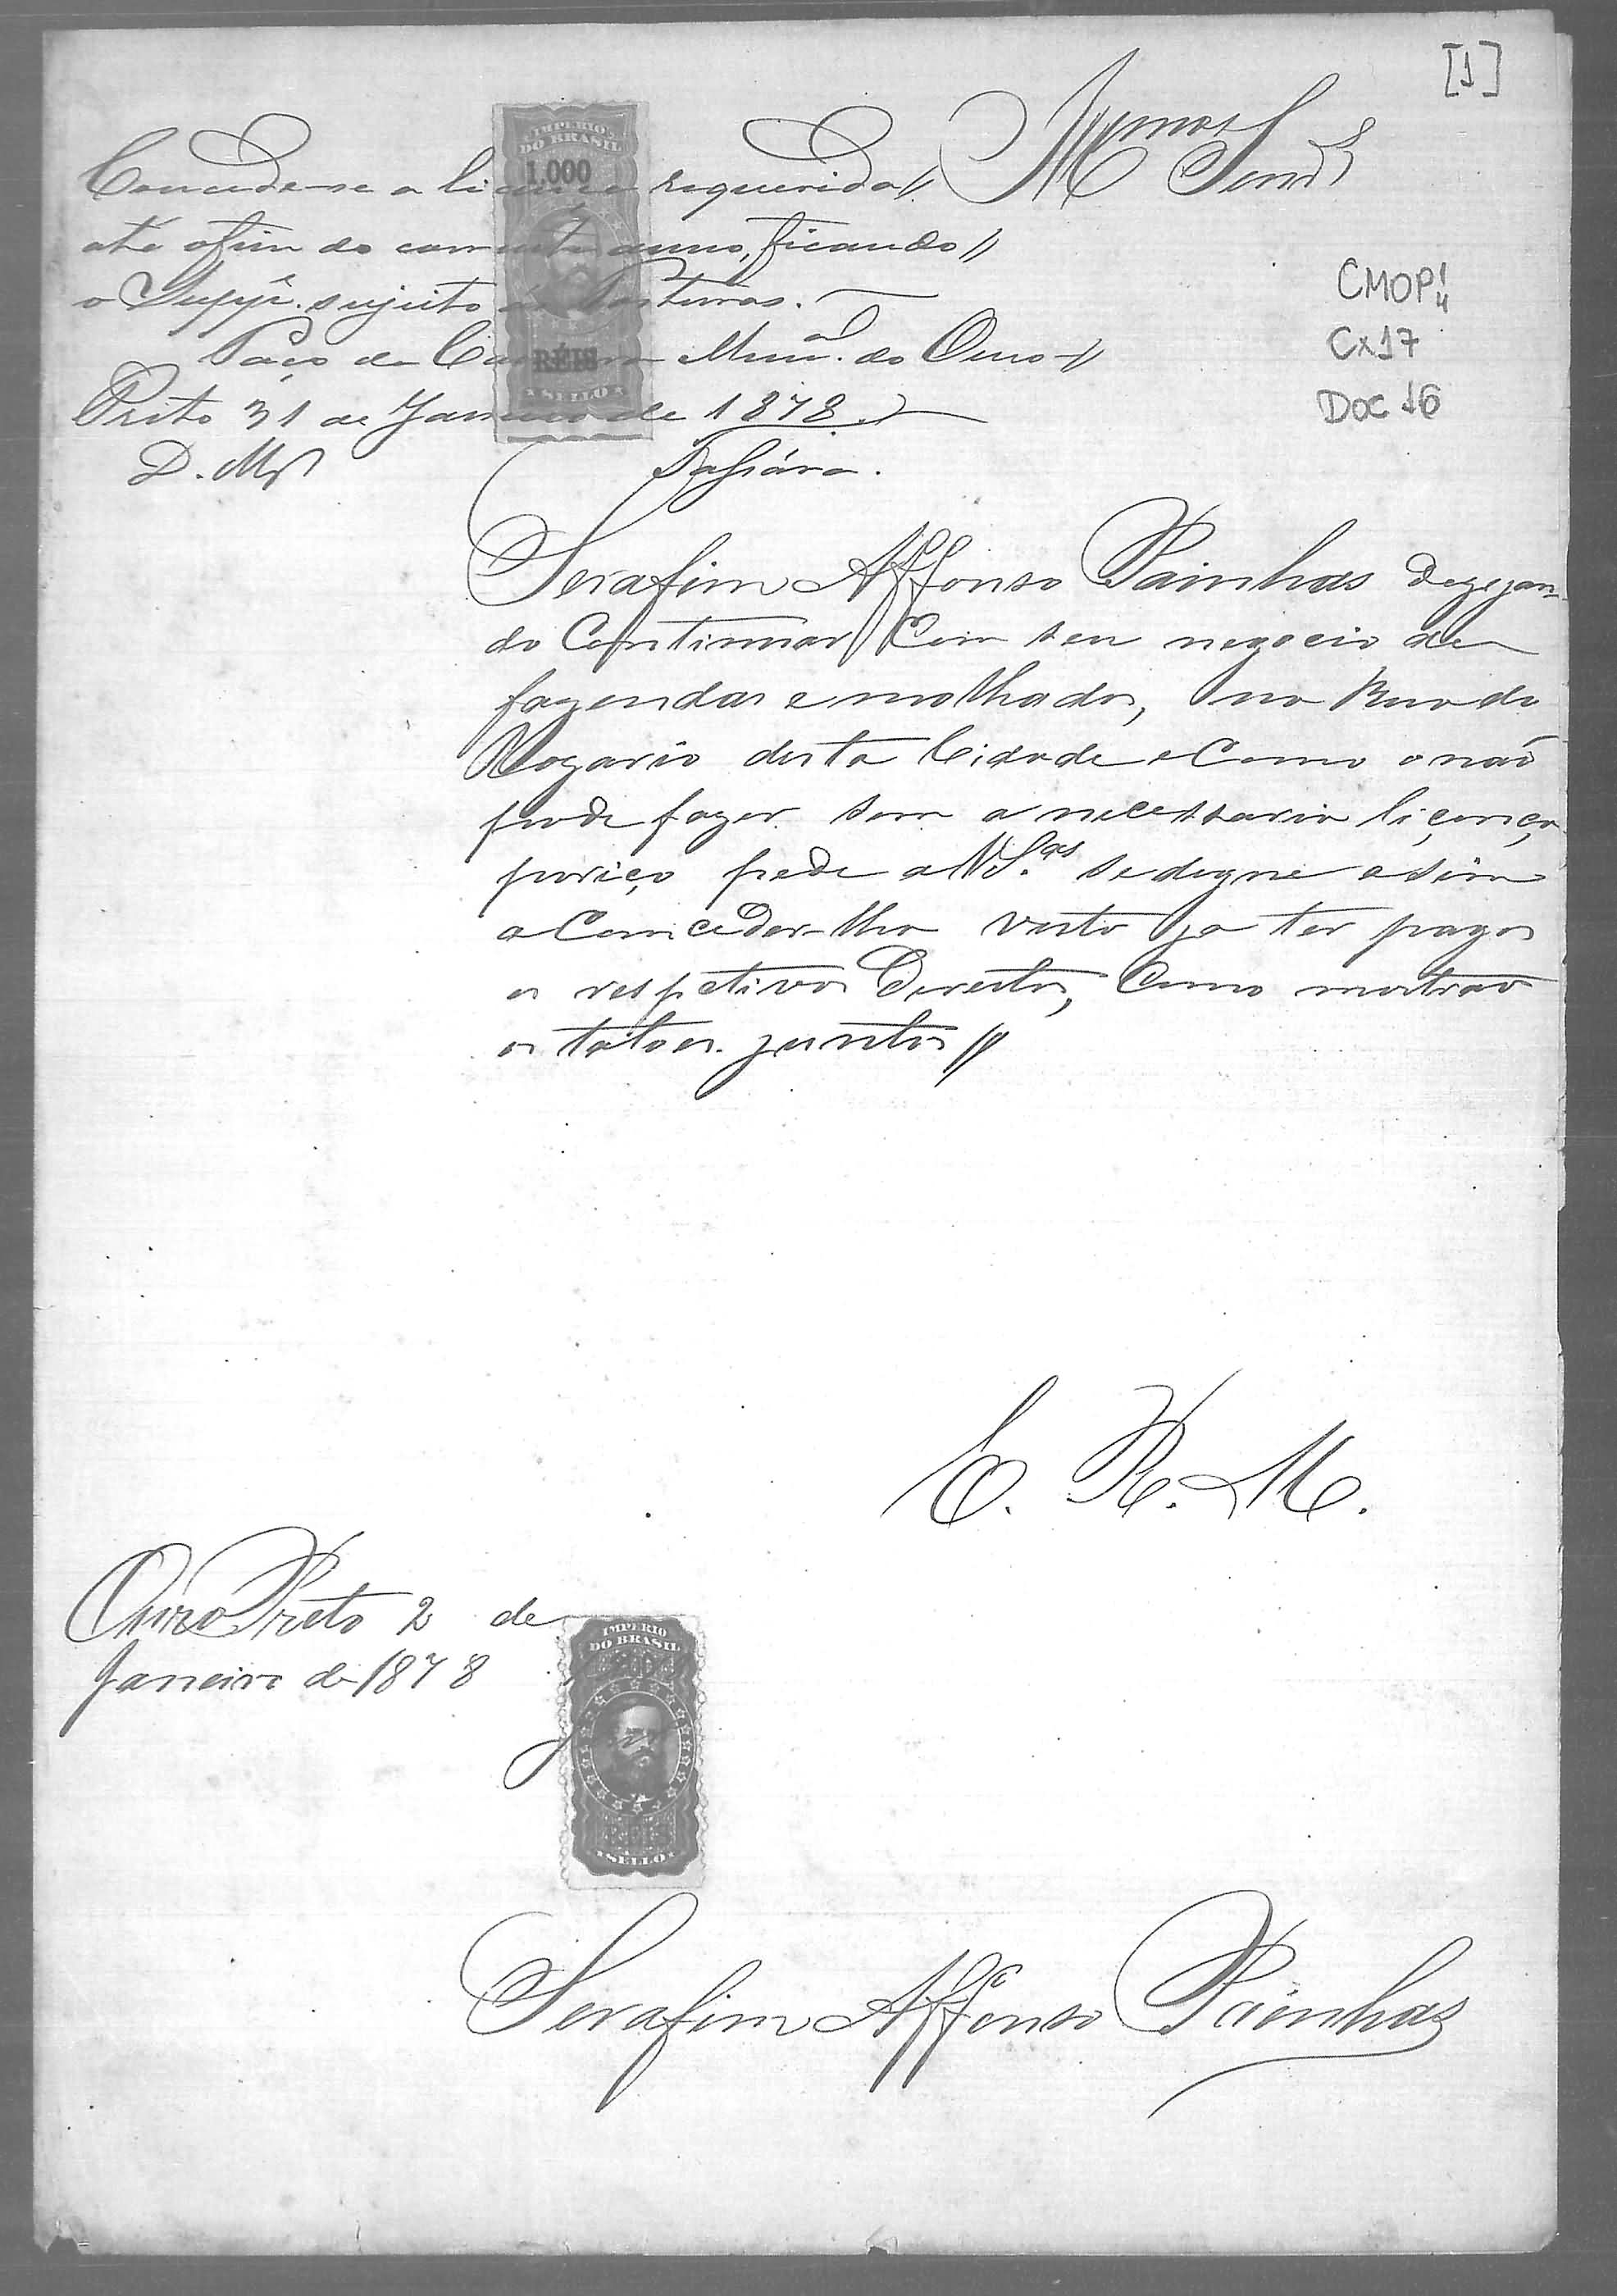 [1]
Illmos Senrs
Concede-se a licença requerida
até o fim do corrente anno, ficando
o Suppe. sujeito ás Posturas.
Paço da Camara Munal. do Ouro-
Preto 31 de Janeiro de 1878.
D. M
IMPERIO DO BRASIL
1.000
RÉIS
SELLO
CMOP
Cx17
Doc 16
Serafim Affonso Painhas dezejan-
do Continuar Com seu negocio de
fazendas e molhados, na Rua do
Rozario desta Cidade e Como o naõ
pode fazer sem a necessaria liçença,
poriço pede a VSas. se digne asim
a Conceder-lha visto ja ter pagos
os respetivos Direitos, Como mostrao
os taloes juntos
E. R. M.
Ouro Preto 2 de
Janeiro de 1878
IMPERIO
DO BRASIL
200
SELLO
Serafim Affonso Painhas